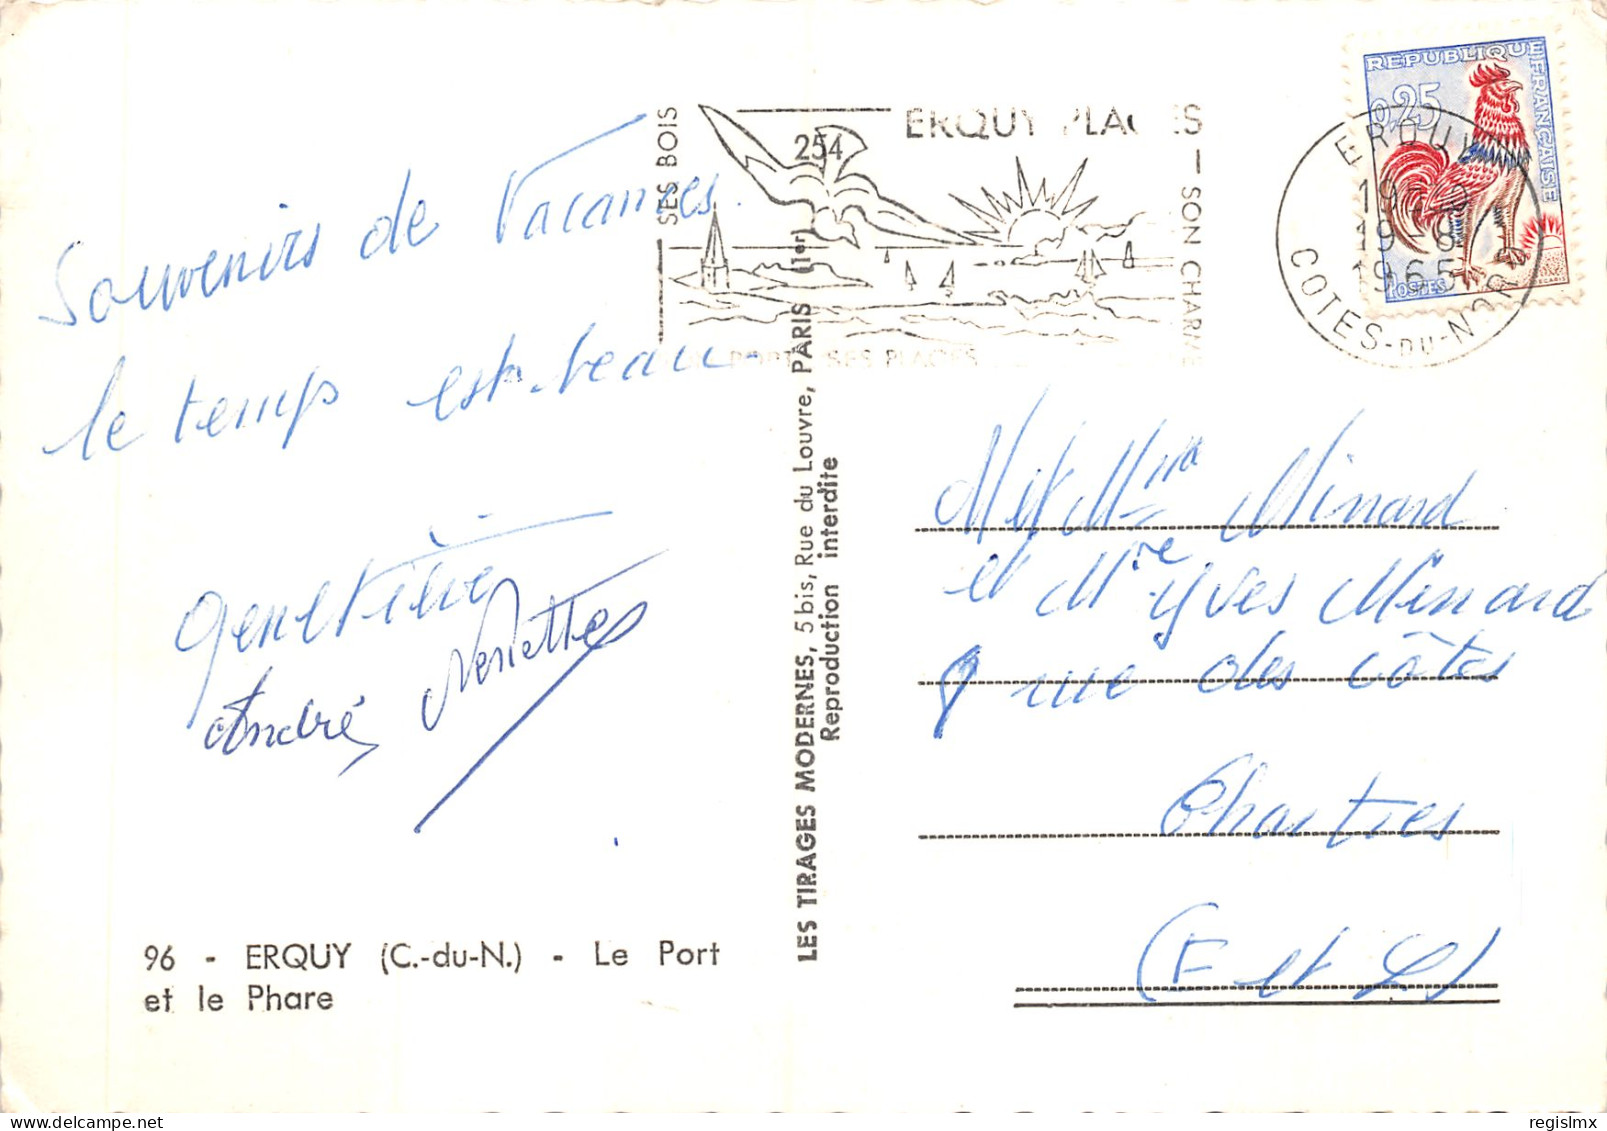 Souvenirs de Vacances.
le temps est beau.
Geneviève
André
96 - ERQUY (C.-du-N.) - Le Port
et le Phare
LES TIRAGES MODERNES, 5 bis, Rue du Louvre, PARIS (1er)
Reproduction interdite
254
SES BOIS
ERQUY PLAGES
SON CHARME
SES PLAGES
REPUBLIQUE FRANÇAISE
0,25
POSTES
ERQUY
19-8
1965
COTES-DU-NORD
Minard
et Yves Minard
rue des côtes
Chartres
(E et L)